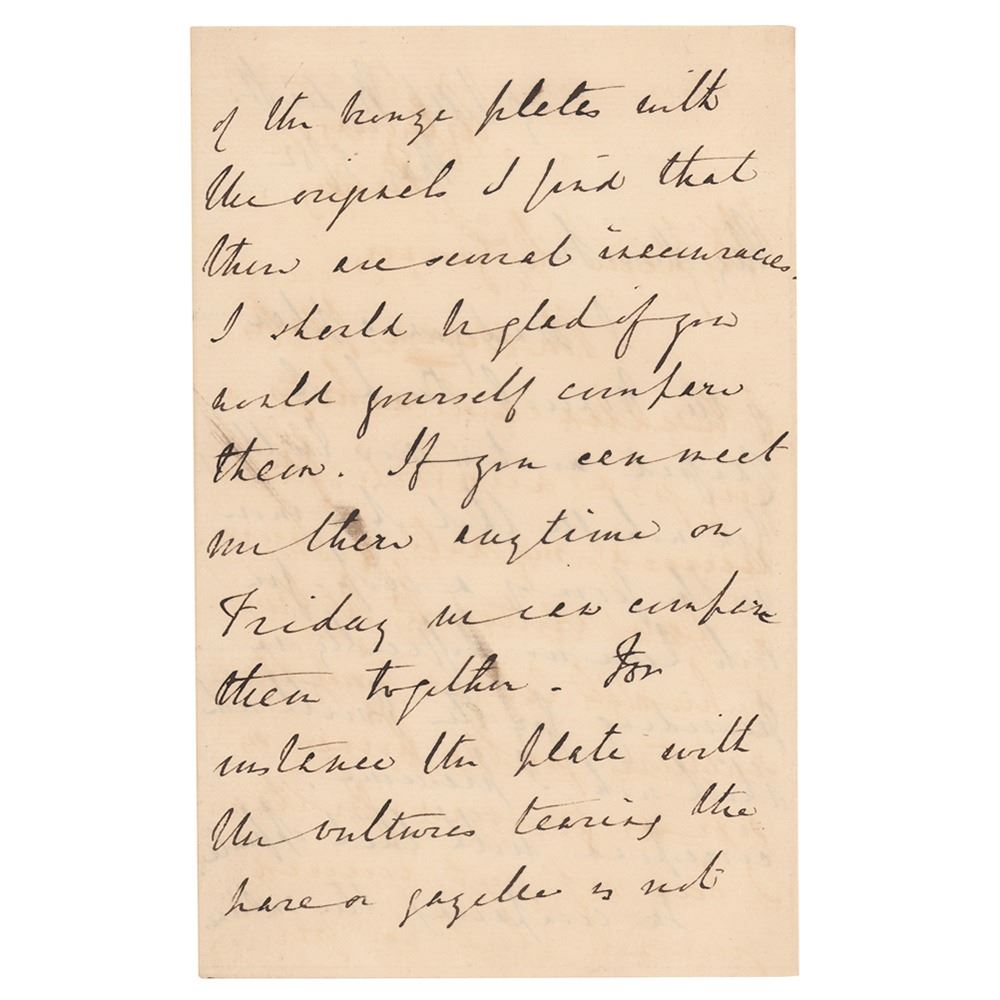 of the bronze plates with
the originals I find that
there are several inaccuracies.
I should be glad if you
would yourself compare
them. If you can meet
me there anytime on
Friday we can compare
them together. For
instance the plate with
the vultures tearing the
hare or gazelle is not